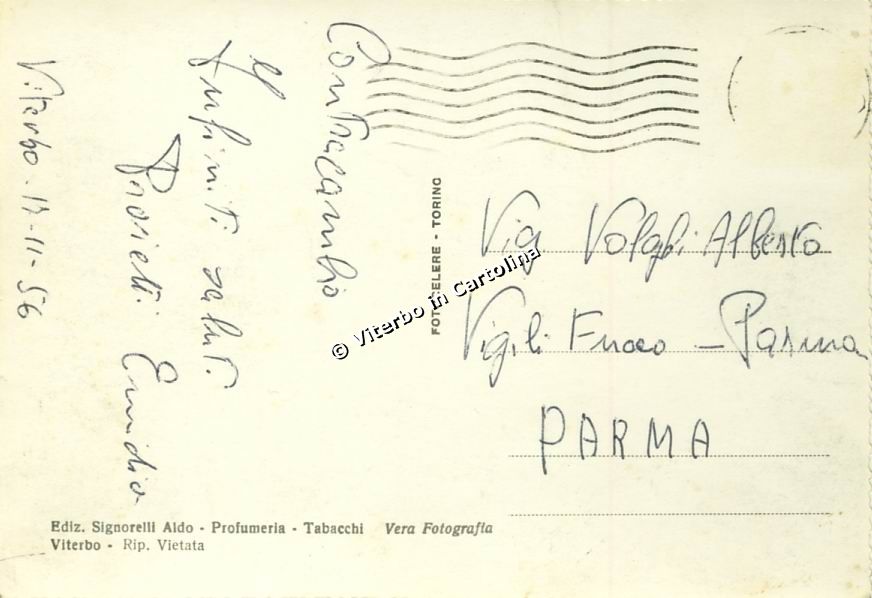 Contracambio
Infiniti saluti.
Proietti Emidio
Viterbo
FOTOCELERE - TORINO
© Viterbo in Cartolina
Vig. Alberto
Vigili Fuoco - Parma
PARMA
Ediz. Signorelli Aldo - Profumeria - Tabacchi Vera Fotografia
Viterbo - Rip. Vietata